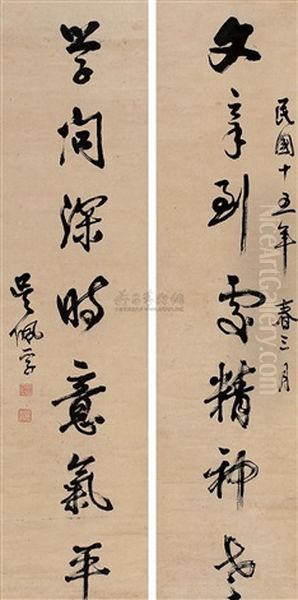 民國十五年 春三月
文章到處精神老
学問深時意氣平
吳佩孚
NiceArtGallery.com